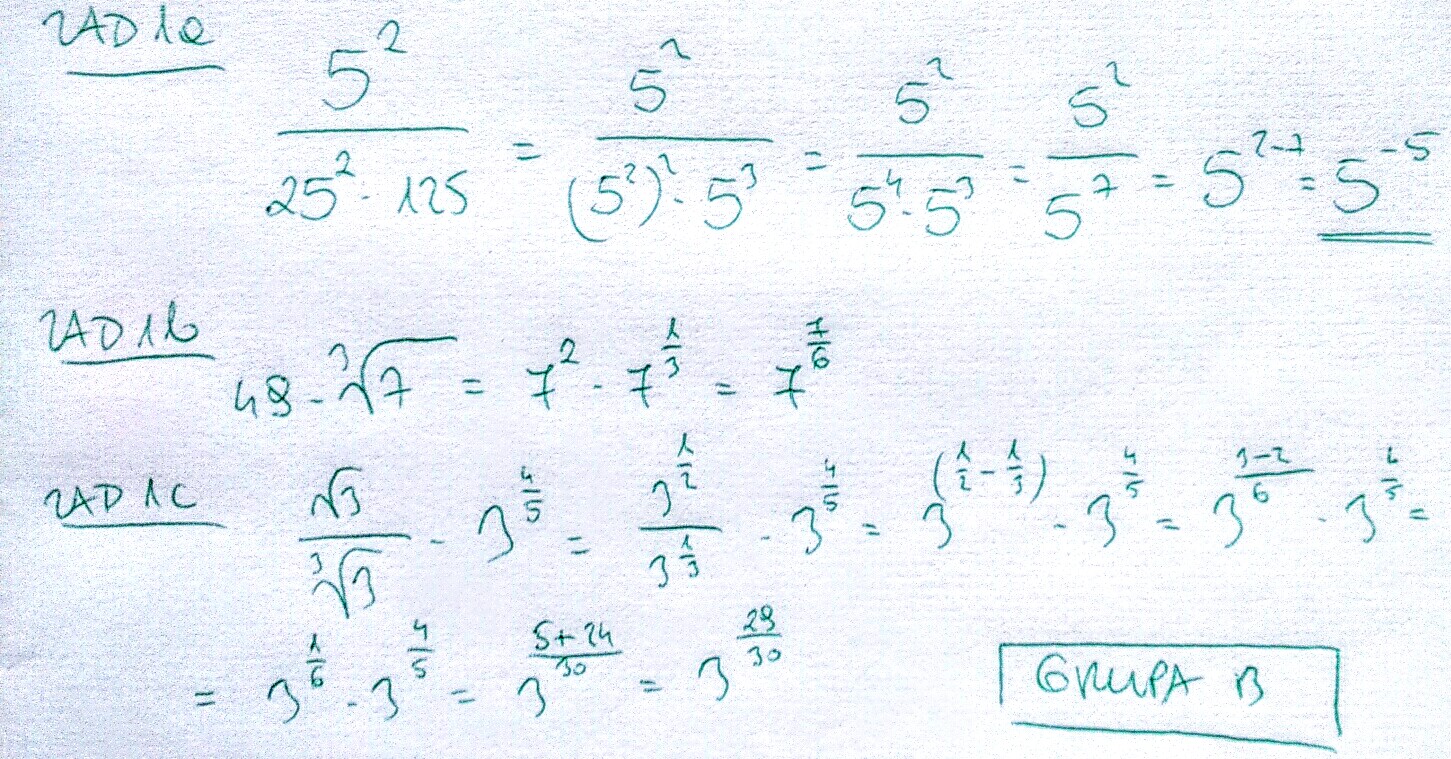 ZAD 1a
5² / (25² · 125) = 5² / ((5²)² · 5³) = 5² / (5⁴ · 5³) = 5² / 5⁷ = 5^(2-7) = 5^(-5)
ZAD 1b
49 · ³√7 = 7² · 7^(1/3) = 7^(7/6)
ZAD 1C
√3 / ³√3 · 3^(4/5) = 3^(1/2) / 3^(1/3) · 3^(4/5) = 3^(1/2 - 1/3) · 3^(4/5) = 3^((3-2)/6) · 3^(4/5) =
= 3^(1/6) · 3^(4/5) = 3^((5+24)/30) = 3^(29/30)
GRUPA B